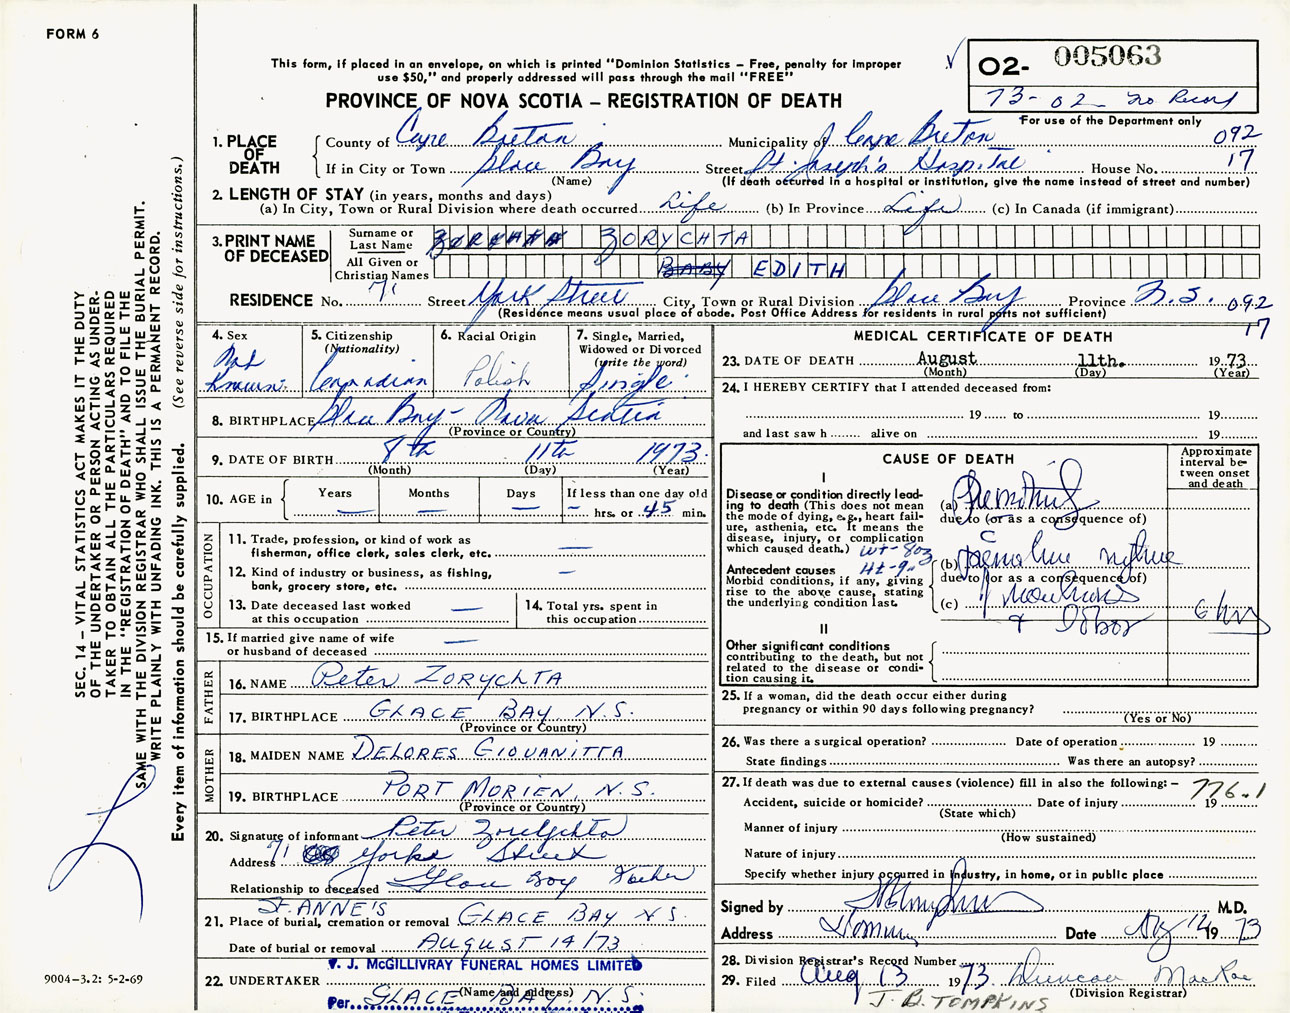 FORM 6
This form, if placed in an envelope, on which is printed "Dominion Statistics – Free, penalty for improper
use $50," and properly addressed will pass through the mail "FREE"
PROVINCE OF NOVA SCOTIA – REGISTRATION OF DEATH
02- 005063
73-02 No Record
For use of the Department only
1. PLACE OF DEATH
County of Cape Breton Municipality of Cape Breton 092
If in City or Town Glace Bay Street St. Joseph's Hospital House No. 17
(Name) (If death occurred in a hospital or institution, give the name instead of street and number)
2. LENGTH OF STAY (in years, months and days)
(a) In City, Town or Rural Division where death occurred Life (b) In Province Life (c) In Canada (if immigrant)
3. PRINT NAME OF DECEASED
Surname or Last Name ZORYCHTA
All Given or Christian Names BABY EDITH
RESIDENCE No. 71 Street York Street City, Town or Rural Division Glace Bay Province N.S. 092
(Residence means usual place of abode. Post Office Address for residents in rural parts not sufficient)
17
4. Sex Not Known
5. Citizenship (Nationality) Canadian
6. Racial Origin Polish
7. Single, Married, Widowed or Divorced (write the word) Single
8. BIRTHPLACE Glace Bay - Nova Scotia
(Province or Country)
9. DATE OF BIRTH 8th 11th 1973
(Month) (Day) (Year)
10. AGE in Years — Months — Days — If less than one day old – hrs. or 45 min.
OCCUPATION
11. Trade, profession, or kind of work as fisherman, office clerk, sales clerk, etc. —
12. Kind of industry or business, as fishing, bank, grocery store, etc. —
13. Date deceased last worked at this occupation —
14. Total yrs. spent in this occupation
15. If married give name of wife or husband of deceased —
FATHER
16. NAME Peter ZORYCHTA
17. BIRTHPLACE GLACE BAY N.S.
(Province or Country)
MOTHER
18. MAIDEN NAME DELORES GIOVANITTA
19. BIRTHPLACE PORT MORIEN, N.S.
(Province or Country)
20. Signature of informant Peter Zorychta
Address 71 Yorke Street
Relationship to deceased Glace Bay Father
ST. ANNE'S
21. Place of burial, cremation or removal GLACE BAY N.S.
Date of burial or removal AUGUST 14/73
V. J. McGILLIVRAY FUNERAL HOMES LIMITED
22. UNDERTAKER
(Name and address)
Per. GLACE BAY, N.S.
MEDICAL CERTIFICATE OF DEATH
23. DATE OF DEATH August 11th. 1973
(Month) (Day) (Year)
24. I HEREBY CERTIFY that I attended deceased from:
19 to 19
and last saw h alive on 19
CAUSE OF DEATH
Approximate interval between onset and death
I
Disease or condition directly leading to death (This does not mean the mode of dying, e.g., heart failure, asthenia, etc. It means the disease, injury, or complication which caused death.)
wt-8oz
Ht-9"
(a) Prematurity
due to (or as a consequence of)
Antecedent causes
Morbid conditions, if any, giving rise to the above cause, stating the underlying condition last.
(b)
due to (or as a consequence of)
(c) membranes
& labor
6 hrs
II
Other significant conditions contributing to the death, but not related to the disease or condition causing it.
25. If a woman, did the death occur either during pregnancy or within 90 days following pregnancy?
(Yes or No)
26. Was there a surgical operation? Date of operation 19
State findings Was there an autopsy?
27. If death was due to external causes (violence) fill in also the following: – 776.1
Accident, suicide or homicide? Date of injury 19
(State which)
Manner of injury
(How sustained)
Nature of injury
Specify whether injury occurred in industry, in home, or in public place
Signed by M.D.
Address Date Aug 12 1973
28. Division Registrar's Record Number
29. Filed Aug 13 1973 Duncan MacRae
(Division Registrar)
J. B. TOMPKINS
SEC. 14 – VITAL STATISTICS ACT MAKES IT THE DUTY
OF THE UNDERTAKER OR PERSON ACTING AS UNDER-
TAKER TO OBTAIN ALL THE PARTICULARS REQUIRED
IN THE "REGISTRATION OF DEATH" AND TO FILE THE
SAME WITH THE DIVISION REGISTRAR WHO SHALL ISSUE THE BURIAL PERMIT.
WRITE PLAINLY WITH UNFADING INK. THIS IS A PERMANENT RECORD.
Every item of information should be carefully supplied. (See reverse side for instructions.)
9004-3.2: 5-2-69